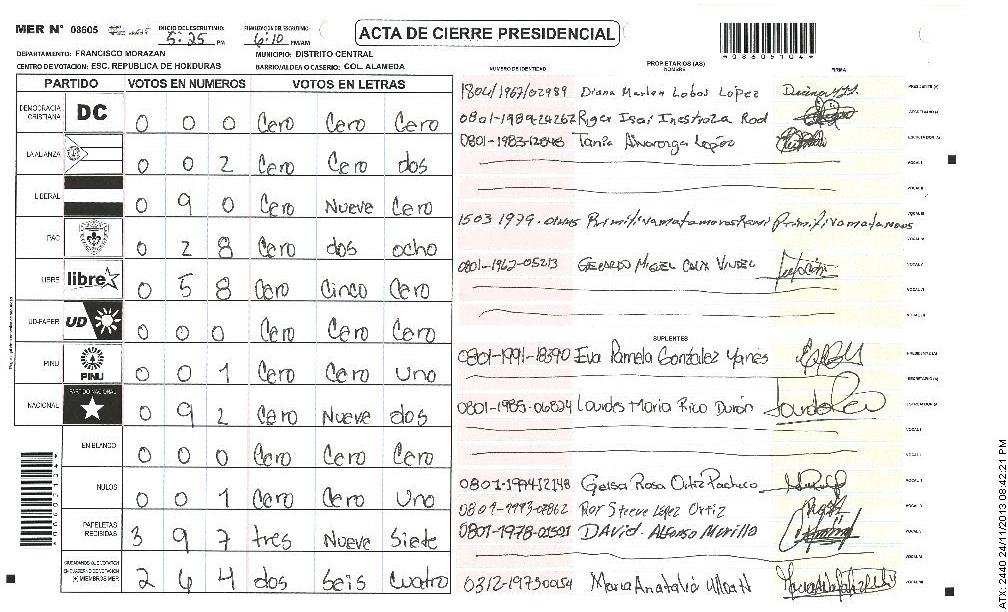 MER N° 08605 INICIO DE ESCRUTINIO: 5:25 PM FINALIZACION DE ESCRUTINIO: 6:10 PM/AM
ACTA DE CIERRE PRESIDENCIAL
*08605104*
DEPARTAMENTO: FRANCISCO MORAZAN MUNICIPIO: DISTRITO CENTRAL
CENTRO DE VOTACION: ESC. REPUBLICA DE HONDURAS BARRIO/ALDEA O CASERIO: COL. ALAMEDA
PARTIDO VOTOS EN NUMEROS VOTOS EN LETRAS
DEMOCRACIA CRISTIANA DC 0 0 0 Cero Cero Cero
LA ALIANZA 0 0 2 Cero Cero dos
LIBERAL 0 9 0 Cero Nueve Cero
PAC 0 2 8 Cero dos ocho
LIBRE libre 0 5 8 Cero Cinco Cero
UD-FAPER UD 0 0 0 Cero Cero Cero
PINU PINU 0 0 1 Cero Cero Uno
NACIONAL PARTIDO NACIONAL 0 9 2 Cero Nueve dos
EN BLANCO 0 0 0 Cero Cero Cero
NULOS 0 0 1 Cero Cero Uno
PAPELETAS RECIBIDAS 3 9 7 tres Nueve Siete
(+) MIEMBROS MER 2 6 4 dos Seis Cuatro
NUMERO DE IDENTIDAD PROPIETARIOS (AS) NOMBRE FIRMA
1804/1967/02989 Diana Marlen Lobos Lopez
Roger Isai Inestroza Rod
Tania Alvarenga López
1503 1979
0801-1962-05213 Gerardo Miguel Calix
SUPLENTES
0801-1991-18390 Eva Pamela González Yanes
0801-1985-06824 Lourdes Maria Rico Durón
Geisa Rosa Ortiz Pacheco
Steeve Lopez Ortiz
0801-1978-01501 DAVID Alfonso Murillo
Maria Anatalia
ATX: 2440 24/11/2013 08:42:21 PM